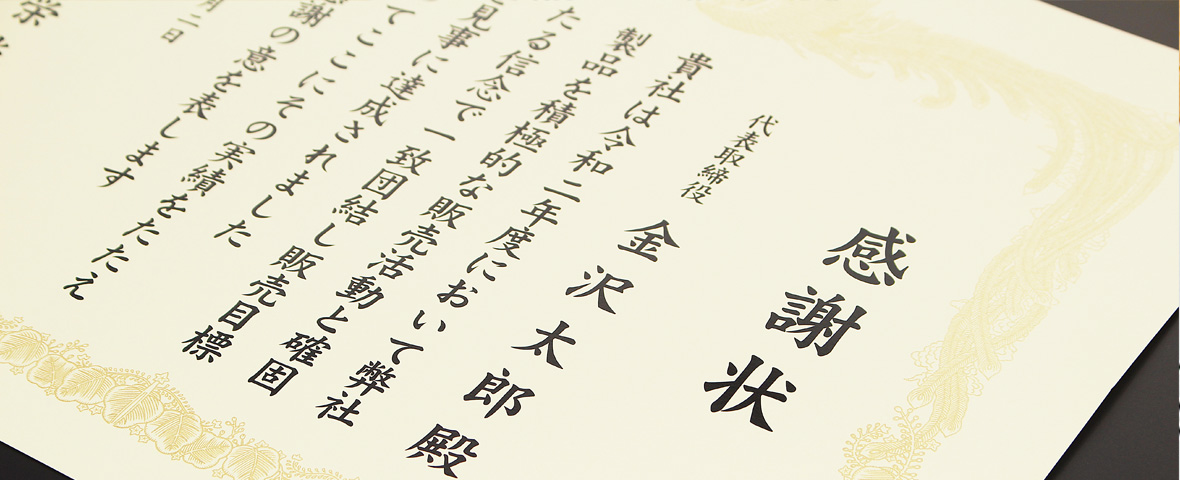 感謝状
代表取締役
金沢太郎殿
貴社は令和二年度において弊社
製品を積極的な販売活動と確固
たる信念で一致団結し販売目標
見事に達成されました
てここにその実績をたたえ
謝の意を表します
月二日
栄